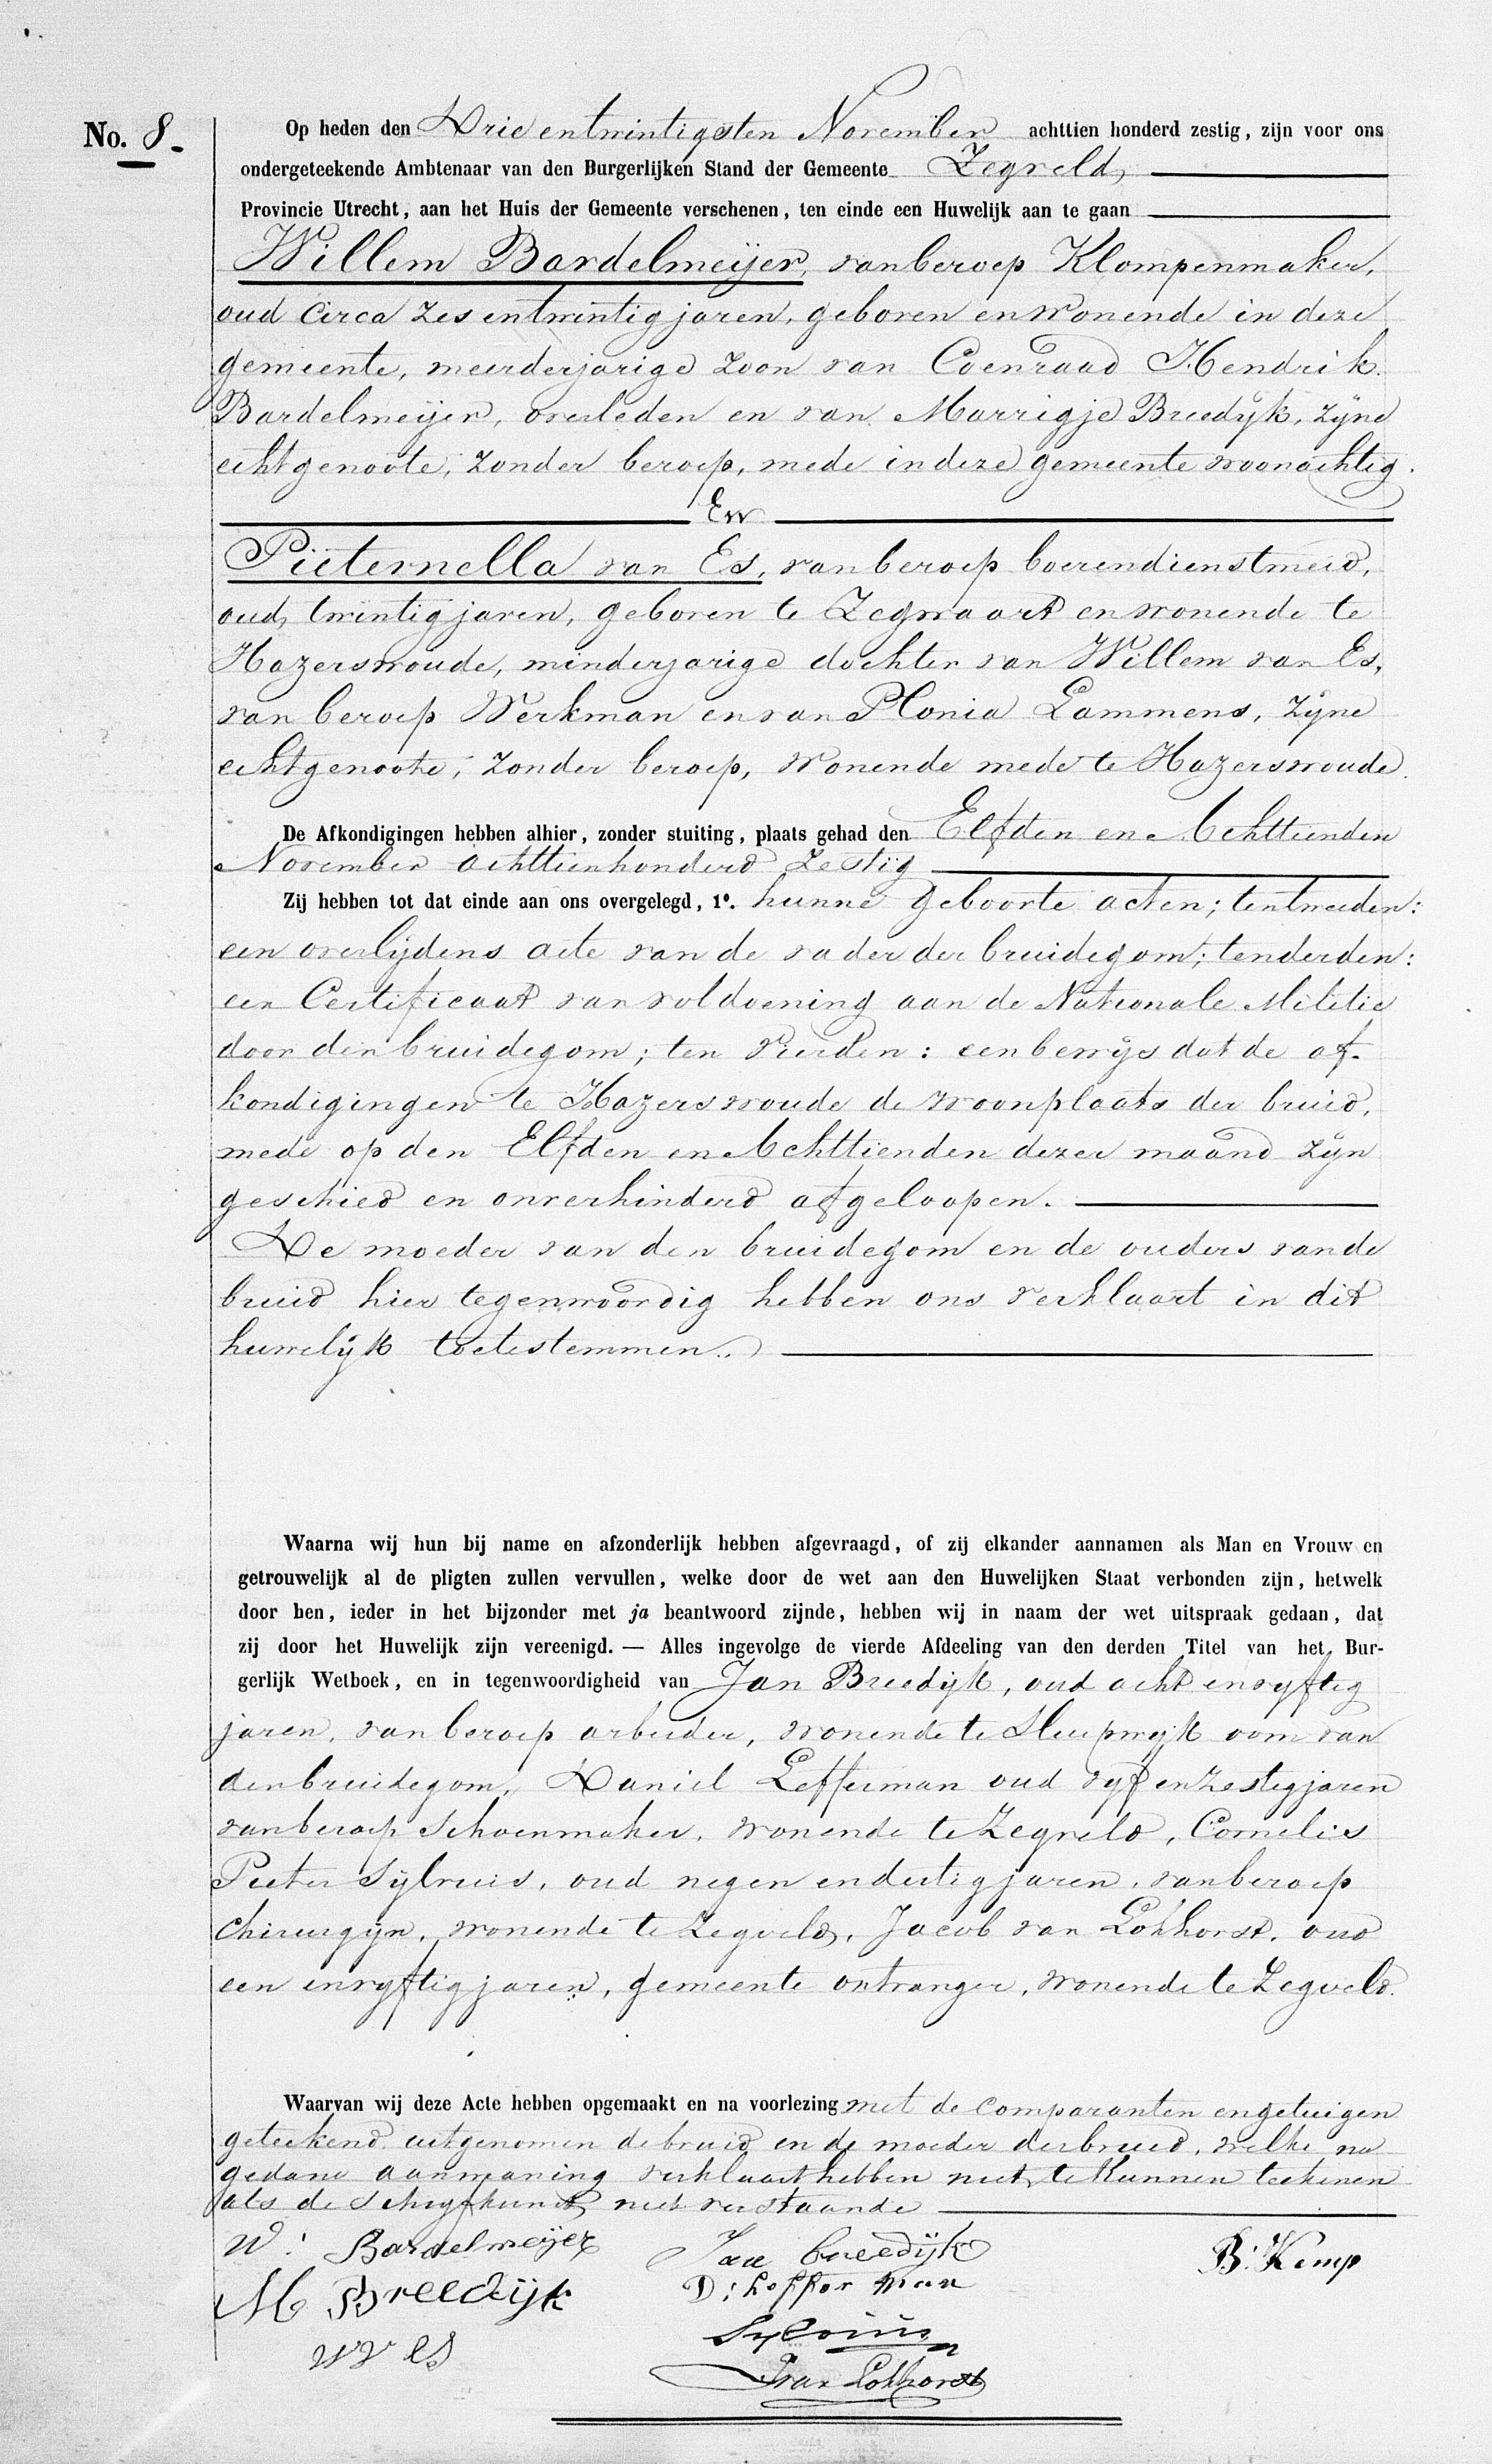 No. 8.
Op heden den Drie entwintigsten November achttien honderd zestig, zijn voor ons
ondergeteekende Ambtenaar van den Burgerlijken Stand der Gemeente Zegveld,
Provincie Utrecht, aan het Huis der Gemeente verschenen, ten einde een Huwelijk aan te gaan
Willem Bardelmeijer, van beroep Klompenmaker,
oud circa zes entwintig jaren, geboren en wonende in deze
gemeente, meerderjarige zoon van Coenraad Hendrik
Bardelmeijer, overleden en van Marrigje Breedijk, zijne
echtgenoote, zonder beroep, mede in deze gemeente woonachtig.
En
Pieternella van Es, van beroep boerendienstmeid,
oud, twintig jaren, geboren te Zegwaart en wonende te
Hazerswoude, minderjarige dochter van Willem van Es,
van beroep Werkman en van Plonia Lammens, zijne
echtgenoote, zonder beroep, wonende mede te Hazerswoude.
De Afkondigingen hebben alhier, zonder stuiting, plaats gehad den Elfden en Achttienden
November achttienhonderd Zestig
Zij hebben tot dat einde aan ons overgelegd, 1º. hunne geboorte acten; tentweeden:
een overlijdens acte van de vader der bruidegom; tenderden:
een Certificaat van voldoening aan de Nationale Militie
door den bruidegom; ten vierden: een bewijs dat de af-
kondigingen te Hazerswoude de woonplaats der bruid,
mede op den Elfden en Achttienden dezer maand zijn
geschied en onverhinderd afgeloopen.
De moeder van den bruidegom en de ouders van de
bruid hier tegenwoordig hebben ons verklaart in dit
huwelijk toetestemmen.
Waarna wij hun bij name en afzonderlijk hebben afgevraagd, of zij elkander aannamen als Man en Vrouw en
getrouwelijk al de pligten zullen vervullen, welke door de wet aan den Huwelijken Staat verbonden zijn, hetwelk
door hen, ieder in het bijzonder met ja beantwoord zijnde, hebben wij in naam der wet uitspraak gedaan, dat
zij door het Huwelijk zijn vereenigd. — Alles ingevolge de vierde Afdeeling van den derden Titel van het Bur-
gerlijk Wetboek, en in tegenwoordigheid van Jan Breedijk, oud acht en vyftig
jaren, van beroep arbeider, wonende te Sluipwijk oom van
den bruidegom, Daniel Lefferman oud vyf en zestig jaren
van beroep Schoenmaker, wonende te Zegveld, Cornelis
Pieter Sylvius, oud negen en dertig jaren, van beroep
chirurgijn, wonende te Zegveld, Jacob van Lokhorst, oud
een en vyftig jaren, gemeente ontvanger, wonende te Zegveld.
Waarvan wij deze Acte hebben opgemaakt en na voorlezing met de comparanten en getuigen
geteekend uitgenomen de bruid en de moeder der bruid, welke na
gedane aanmaning verklaart hebben niet te kunnen teekenen
als de schryfkunst niet verstaande
W: Bardelmeijer
Jan breedijk
B: Kemp
M Breedijk
D: Leffer man
W V ES
Sylvius
J van Lokhorst